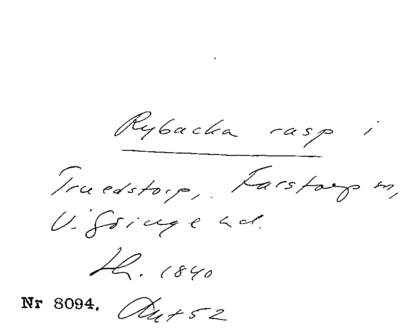 Rybacka rasp i
Truedstorp, Farstorp sn,
V. Göinge hd.
1840
Nr 8094.